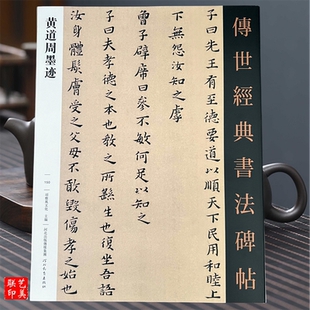 傳世經典書法碑帖
子曰先王有至德要道以順天下民用和睦上
下無怨汝知之虖
曾子辟席曰參不敏何足以知之
子曰夫孝德之本也教之所繇生也復坐吾語
汝身體髮膚受之父母不敢毀傷孝之始也
黄道周墨迹
艺美
联印